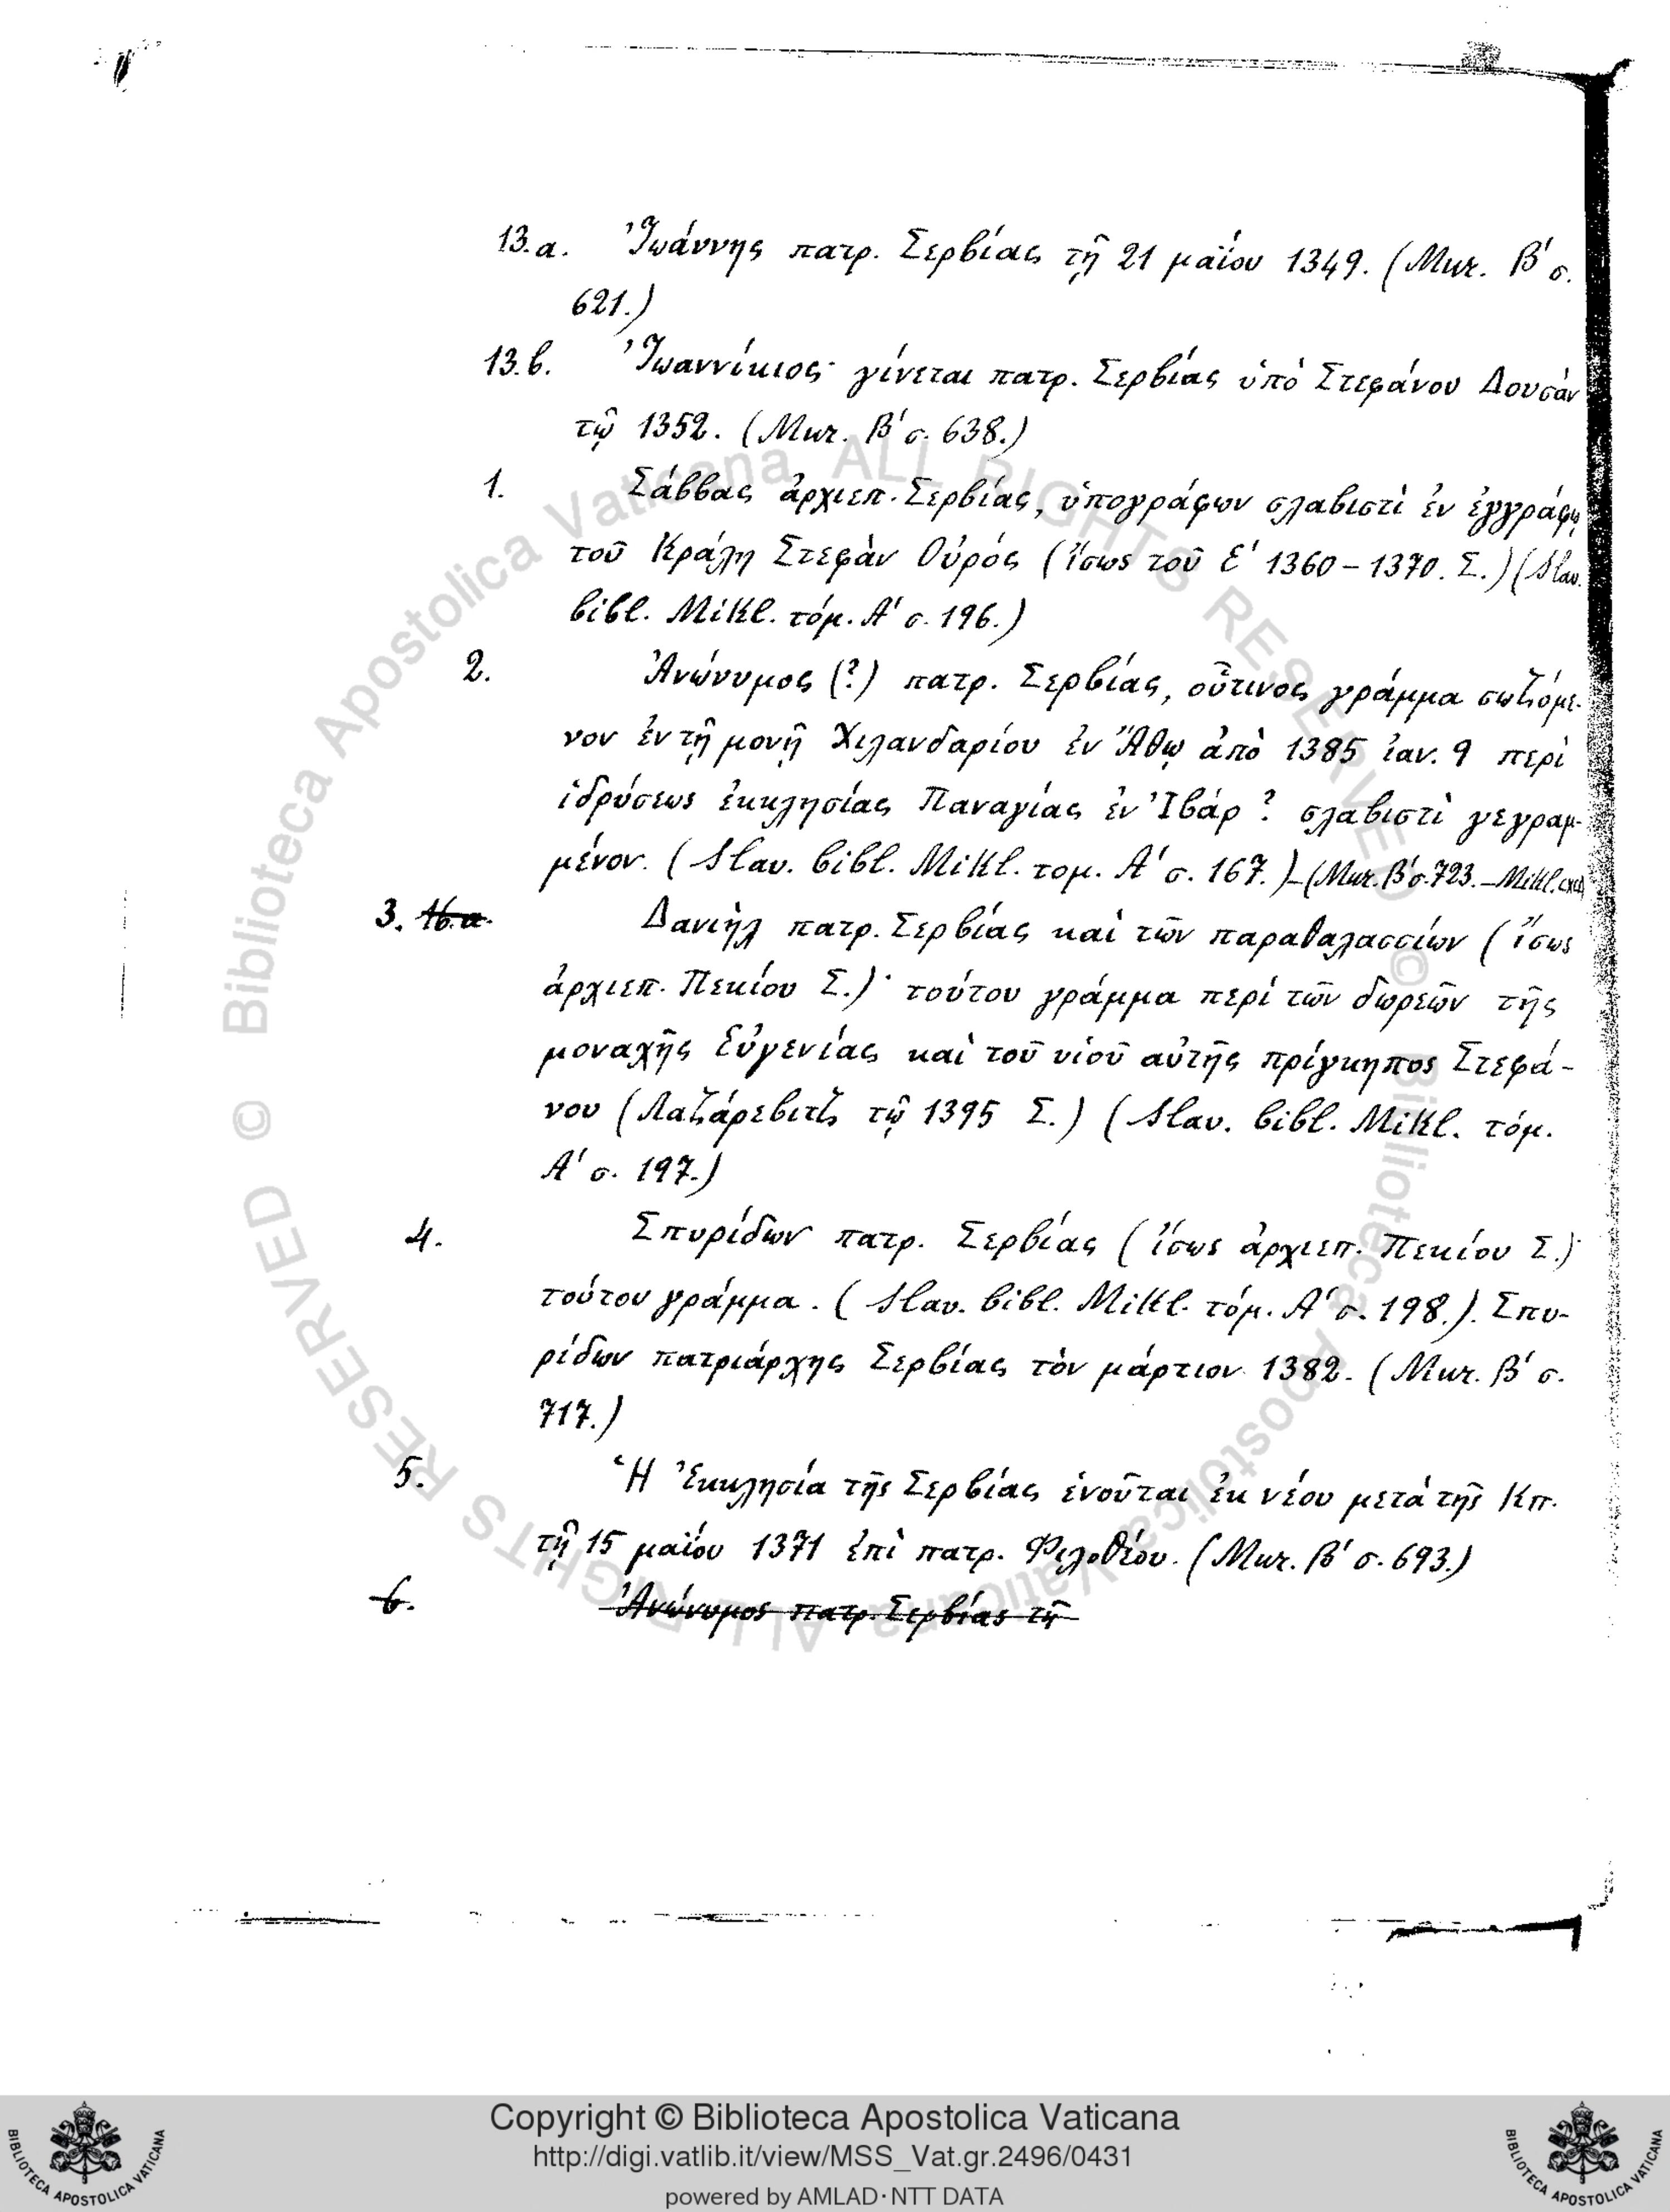 13.a. Ἰωάννης πατρ. Σερβίας τῇ 21 μαΐου 1349. (Μητ. Β' σ.
621.)
13.b. Ἰωαννίκιος· γίνεται πατρ. Σερβίας ὑπὸ Στεφάνου Δουσὰν
τῷ 1352. (Μητ. Β' σ. 638.)
1. Σάββας ἀρχιεπ. Σερβίας, ὑπογράφων σλαβιστὶ ἐν ἐγγράφῳ
τοῦ Κράλη Στεφὰν Οὐρός (ἴσως τοῦ Ε' 1360 – 1370. Σ.) (Slav.
bibl. Mikl. τόμ. Α' σ. 196.)
2. Ἀνώνυμος (?) πατρ. Σερβίας, οὗτινος γράμμα σωζόμε-
νον ἐν τῇ μονῇ Χιλανδαρίου ἐν Ἄθῳ ἀπὸ 1385 ἰαν. 9 περὶ
ἱδρύσεως ἐκκλησίας Παναγίας ἐν Ἰβάρ ? σλαβιστὶ γεγραμ-
μένον. (Slav. bibl. Mikl. τομ. Α' σ. 167.) – (Μητ. Β' σ. 723. – Mikl.
3. 16.a. Δανιὴλ πατρ. Σερβίας καὶ τῶν παραθαλασσίων (ἴσως
ἀρχιεπ. Πεκίου Σ.)· τούτου γράμμα περὶ τῶν δωρεῶν τῆς
μοναχῆς Εὐγενίας καὶ τοῦ υἱοῦ αὐτῆς πρίγκηπος Στεφά-
νου (Λαζάρεβιτζ τῷ 1395 Σ.) (Slav. bibl. Mikl. τόμ.
Α' σ. 197.)
4. Σπυρίδων πατρ. Σερβίας (ἴσως ἀρχιεπ. Πεκίου Σ.)·
τούτου γράμμα. (Slav. bibl. Mikl. τόμ. Α' σ. 198.). Σπυ-
ρίδων πατριάρχης Σερβίας τὸν μάρτιον 1382. (Μητ. Β' σ.
717.)
5. Ἡ Ἐκκλησία τῆς Σερβίας ἑνοῦται ἐκ νέου μετὰ τῆς Κπ.
τῇ 15 μαΐου 1371 ἐπὶ πατρ. Φιλοθέου. (Μητ. Β' σ. 693.)
6. Ἀνώνυμος πατρ. Σερβίας τῇ
© Biblioteca Apostolica Vaticana ALL RIGHTS RESERVED
© Biblioteca Apostolica Vaticana ALL RIGHTS RESERVED
Copyright © Biblioteca Apostolica Vaticana
http://digi.vatlib.it/view/MSS_Vat.gr.2496/0431
powered by AMLAD·NTT DATA
BIBLIOTECA APOSTOLICA VATICANA
BIBLIOTECA APOSTOLICA VATICANA